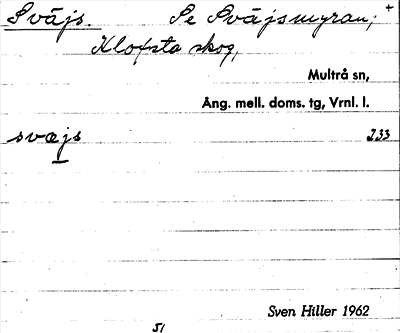 Sväjs. Se Sväjsmyran; +
Klofsta skog,
Multrå sn,
Ång. mell. doms. tg, Vrnl. l.
svæjs 233
Sven Hiller 1962
51